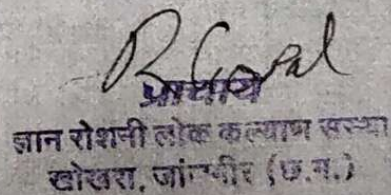 प्राचार्य
ज्ञान रोशनी लोक कल्याण संस्था
खोखरा, जांजगीर (छ.ग.)